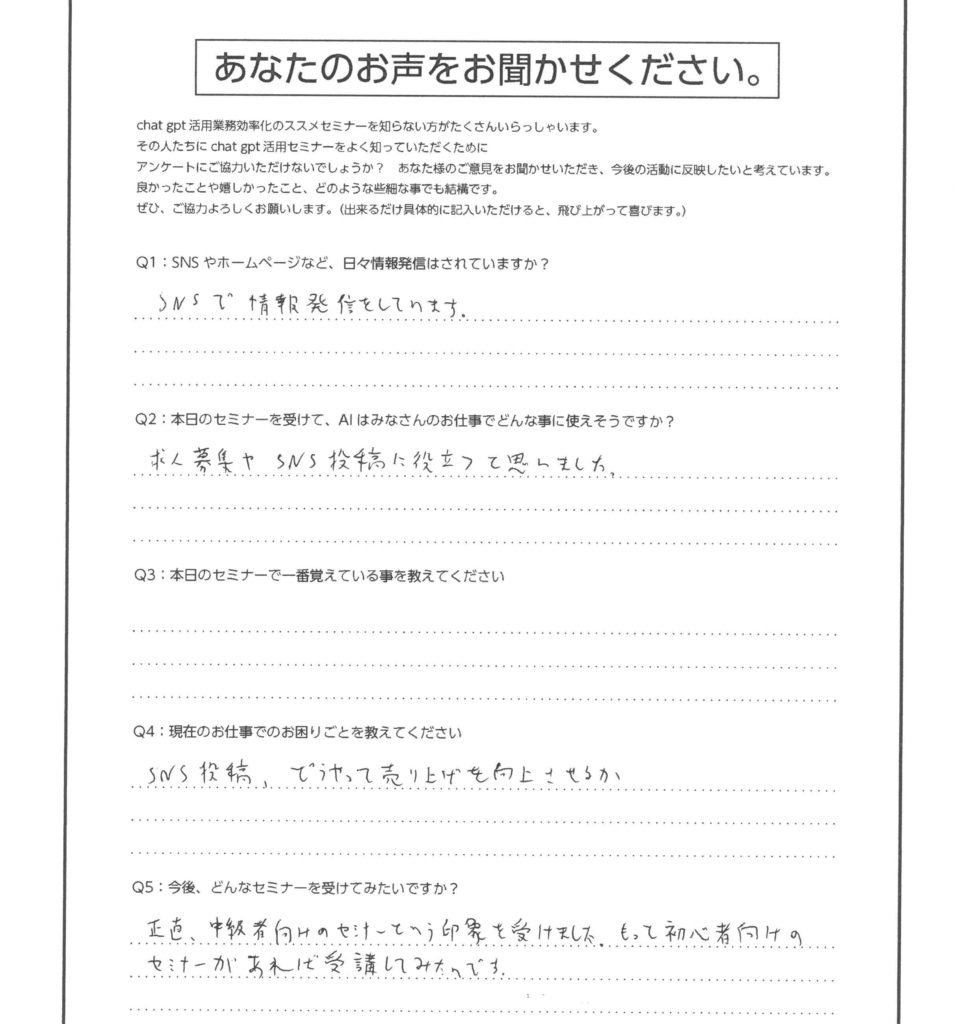 あなたのお声をお聞かせください。
chat gpt 活用業務効率化のススメセミナーを知らない方がたくさんいらっしゃいます。
その人たちに chat gpt 活用セミナーをよく知っていただくために
アンケートにご協力いただけないでしょうか？　あなた様のご意見をお聞かせいただき、今後の活動に反映したいと考えています。
良かったことや嬉しかったこと、どのような些細な事でも結構です。
ぜひ、ご協力よろしくお願いします。（出来るだけ具体的に記入いただけると、飛び上がって喜びます。）
Q1：SNS やホームページなど、日々情報発信はされていますか？
SNSで 情報発信をしています。
Q2：本日のセミナーを受けて、AI はみなさんのお仕事でどんな事に使えそうですか？
求人募集や SNS投稿に役立つて思いました。
Q3：本日のセミナーで一番覚えている事を教えてください
Q4：現在のお仕事でのお困りごとを教えてください
SNS投稿、どうやって売り上げを向上させるか
Q5：今後、どんなセミナーを受けてみたいですか？
正直、中級者向けのセミナーという印象を受けました。もって初心者向けの
セミナーがあれば受講してみたいです。